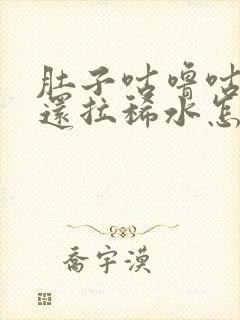 肚子咕噜咕
還拉稀水怎
喬宇漠